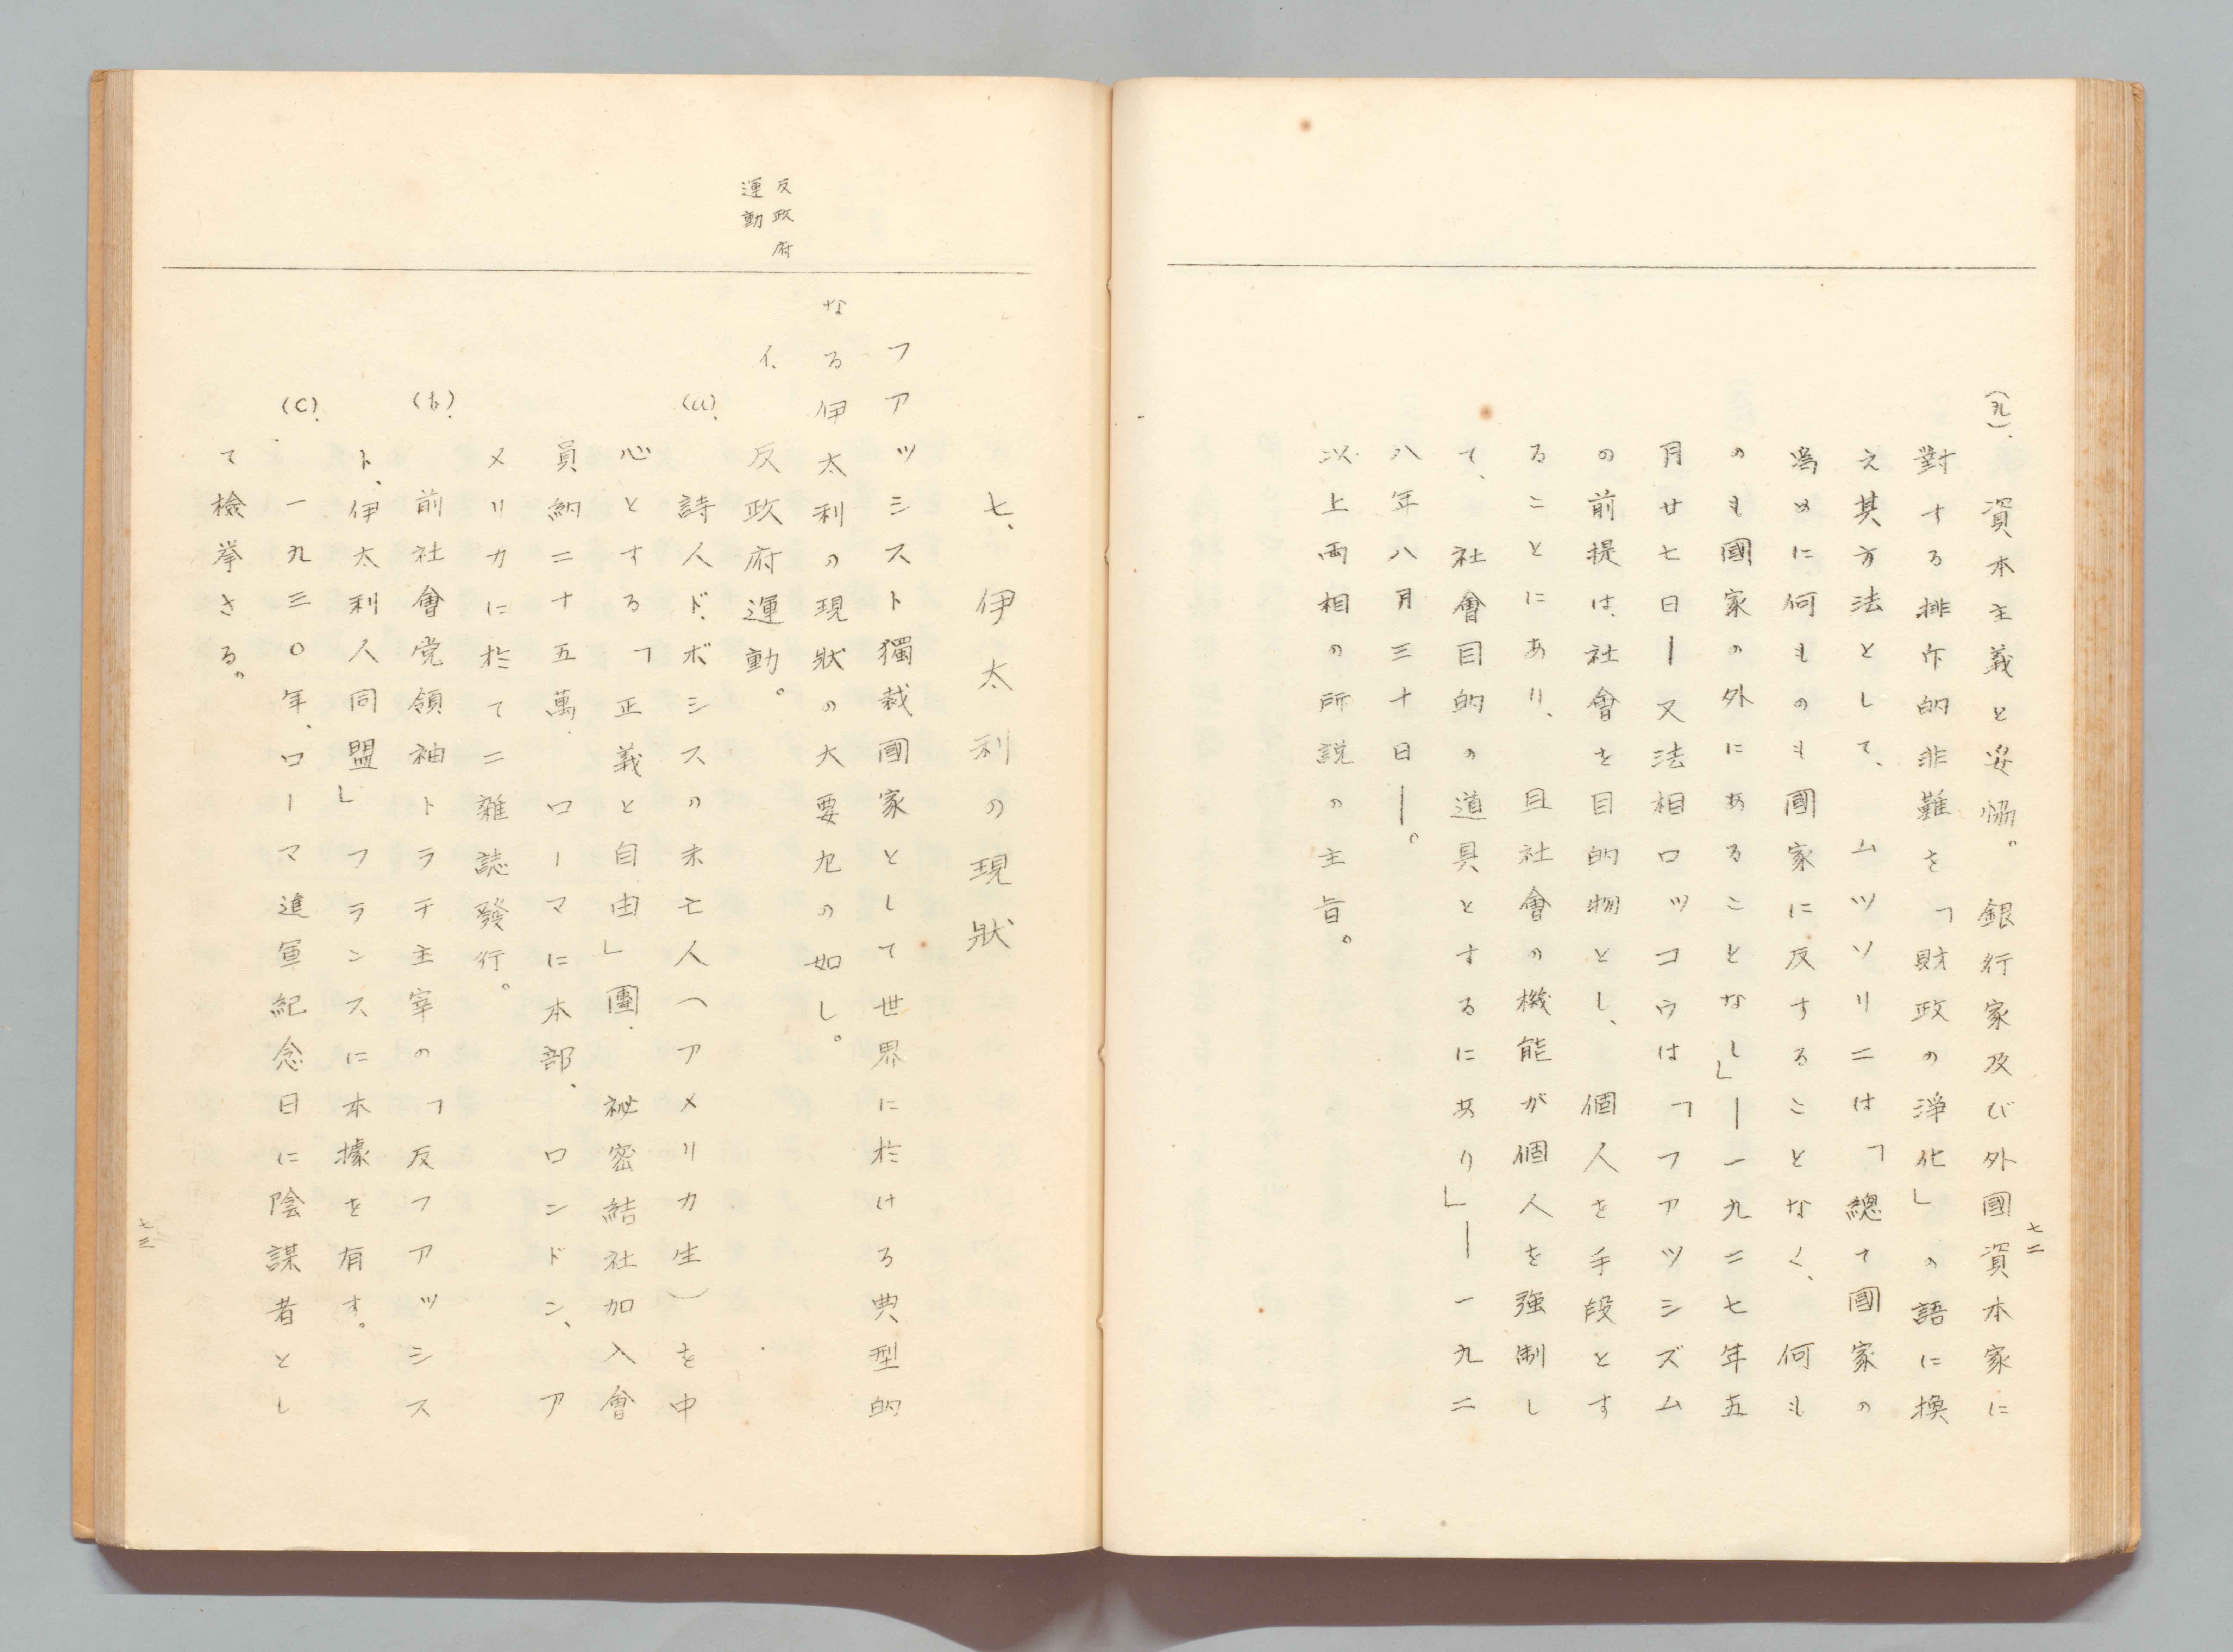 七二
(九)、資本主義と妥協。銀行家及び外國資本家に
對する排斥的非難を「財政の淨化」の語に換
え其方法として、ムツソリニは「總て國家の
為めに何ものも國家に反することなく、何も
のも國家の外にあることなし」―一九二七年五
月廿七日―又法相ロツコウは「フアツシズム
の前提は、社會を目的物とし、個人を手段とす
ることにあり、且社會の機能が個人を強制し
て、社會目的の道具とするにあり」―一九二
八年八月三十日―。
以上両相の所説の主旨。
七、伊太利の現狀
フアツシスト獨裁國家として世界に於ける典型的
なる伊太利の現狀の大要九の如し。
反政府
運動
イ、反政府運動。
(a)、詩人ド、ボシスの未亡人(アメリカ生)を中
心とする「正義と自由」團、祕密結社加入會
員納二十五萬、ローマに本部、ロンドン、ア
メリカに於て二雜誌發行。
(b)、前社會党領袖トラテ主宰の「反フアツシス
ト、伊太利人同盟」フランスに本據を有す。
(C)、一九三〇年、ローマ進軍紀念日に陰謀者とし
て檢挙さる。
七三